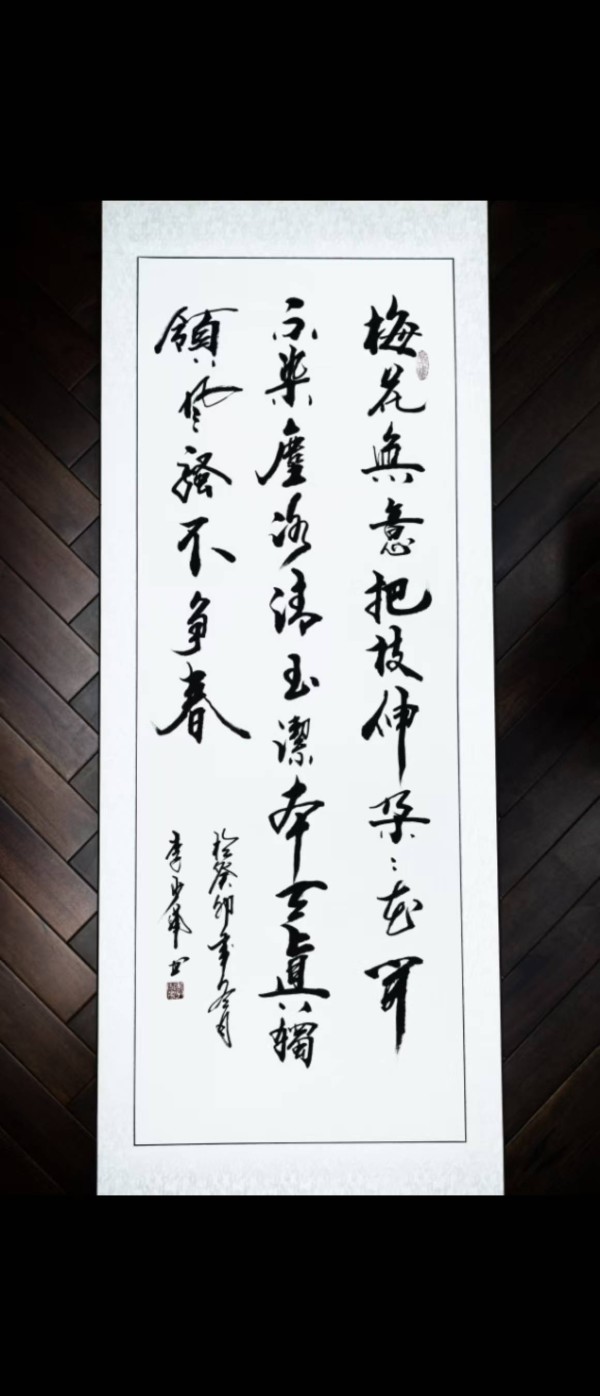 梅花無意把枝伸朵朵花開
不染塵冰清玉潔本天真獨
領風騷不爭春
於癸卯年冬月
李
書